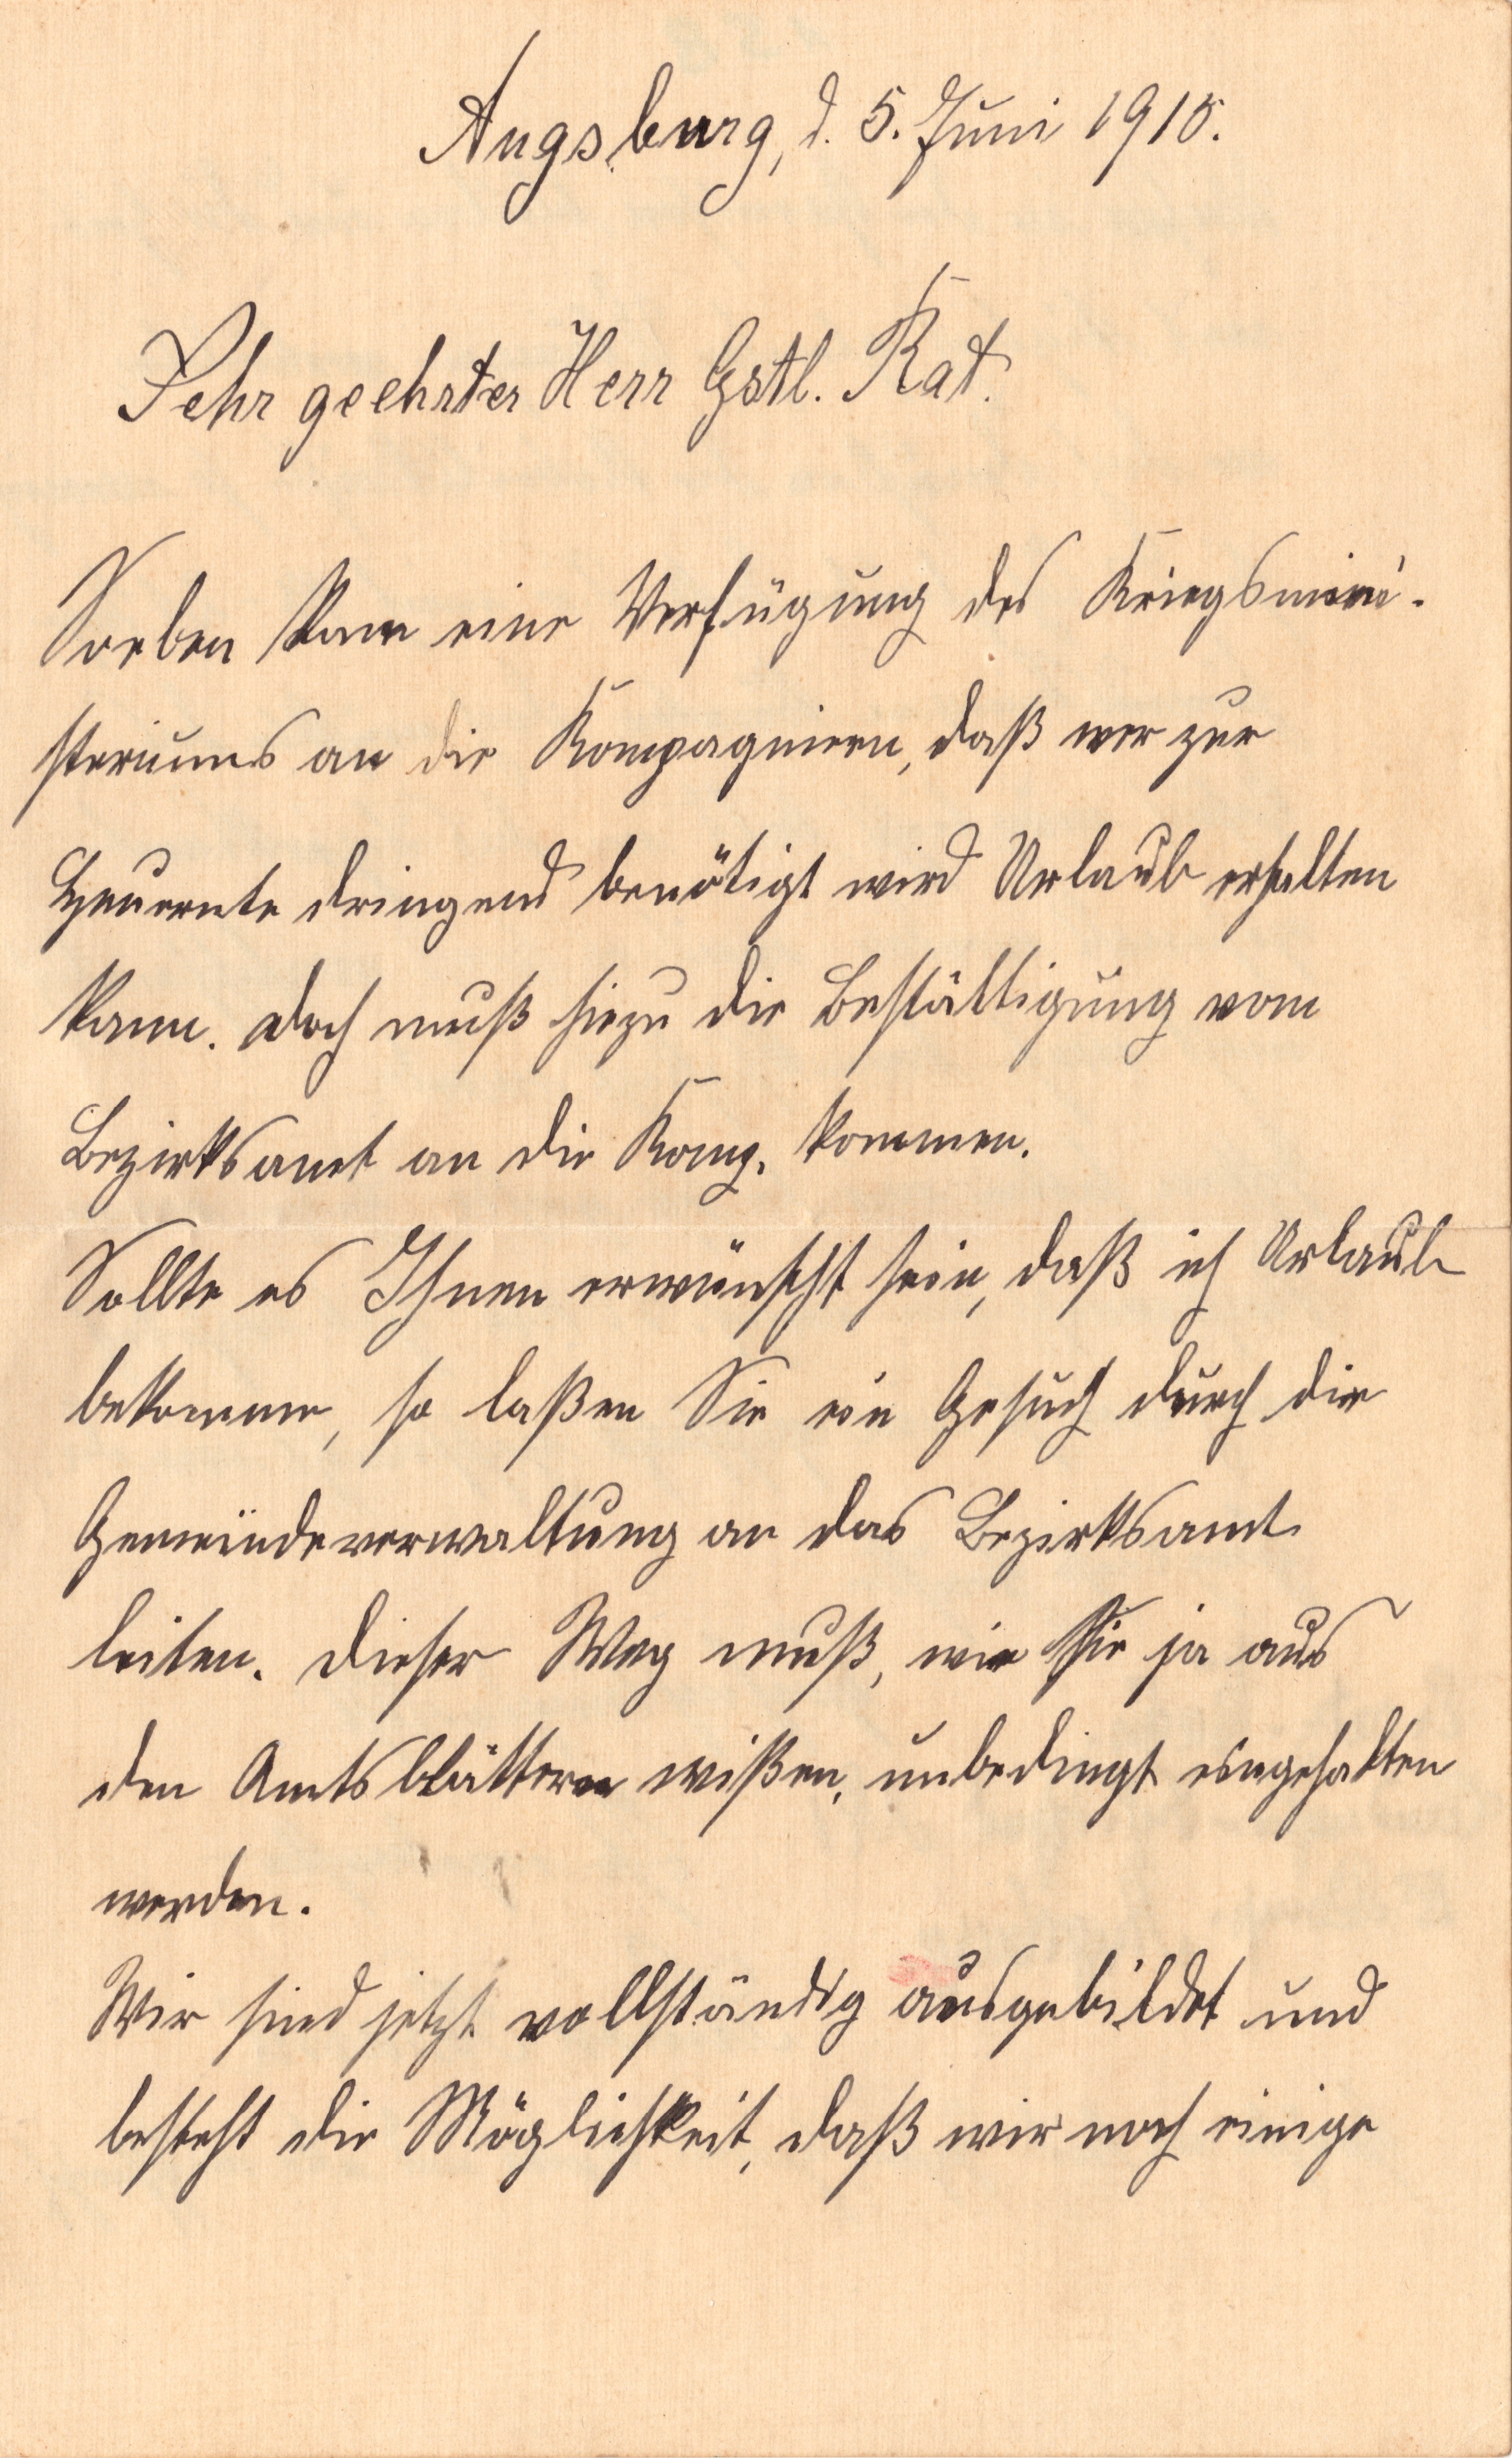 Augsburg, d. 5. Juni 1915.
Sehr geehrter Herr Gstl. Rat.
Soeben kam eine Verfügung des Kriegsmini-
steriums an die Kompagnieen, daß wer zur
Heuernte dringend benötigt wird Urlaub erhalten
kann. Doch muß hiezu die Bestättigung vom
Bezirksamt an die Komp. kommen.
Sollte es Ihnen erwünscht sein, daß ich Urlaub
bekomme, so laßen Sie ein Gesuch durch die
Gemeindeverwaltung an das Bezirksamt
leiten. Dieser Weg muß, wie Sie ja aus
den Amtsblättern wißen, unbedingt eingehalten
werden.
Wir sind jetzt vollständig ausgebildet und
besteht die Möglichkeit, daß wir noch einige